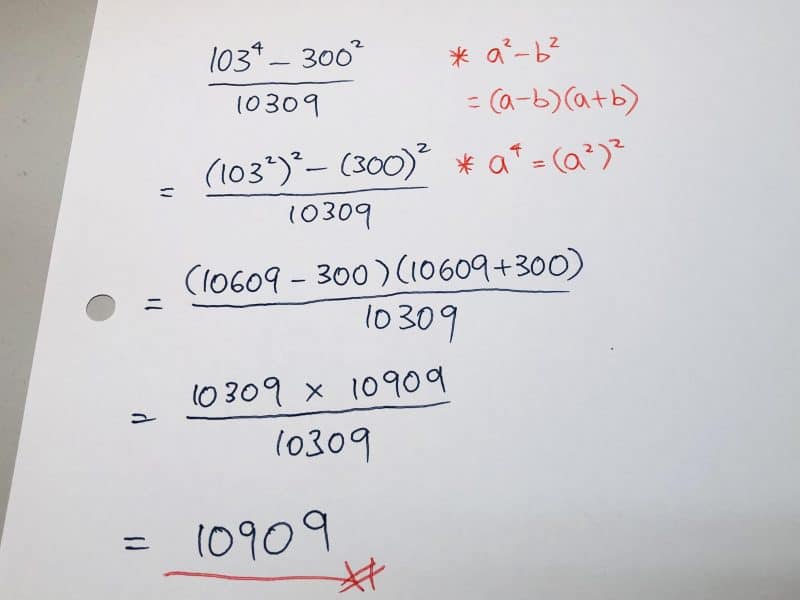 103⁴ – 300² / 10309 * a² – b²
= (a–b)(a+b)
= (103²)² – (300)² / 10309 * a⁴ = (a²)²
= (10609 – 300)(10609+300) / 10309
= 10309 × 10909 / 10309
= 10909